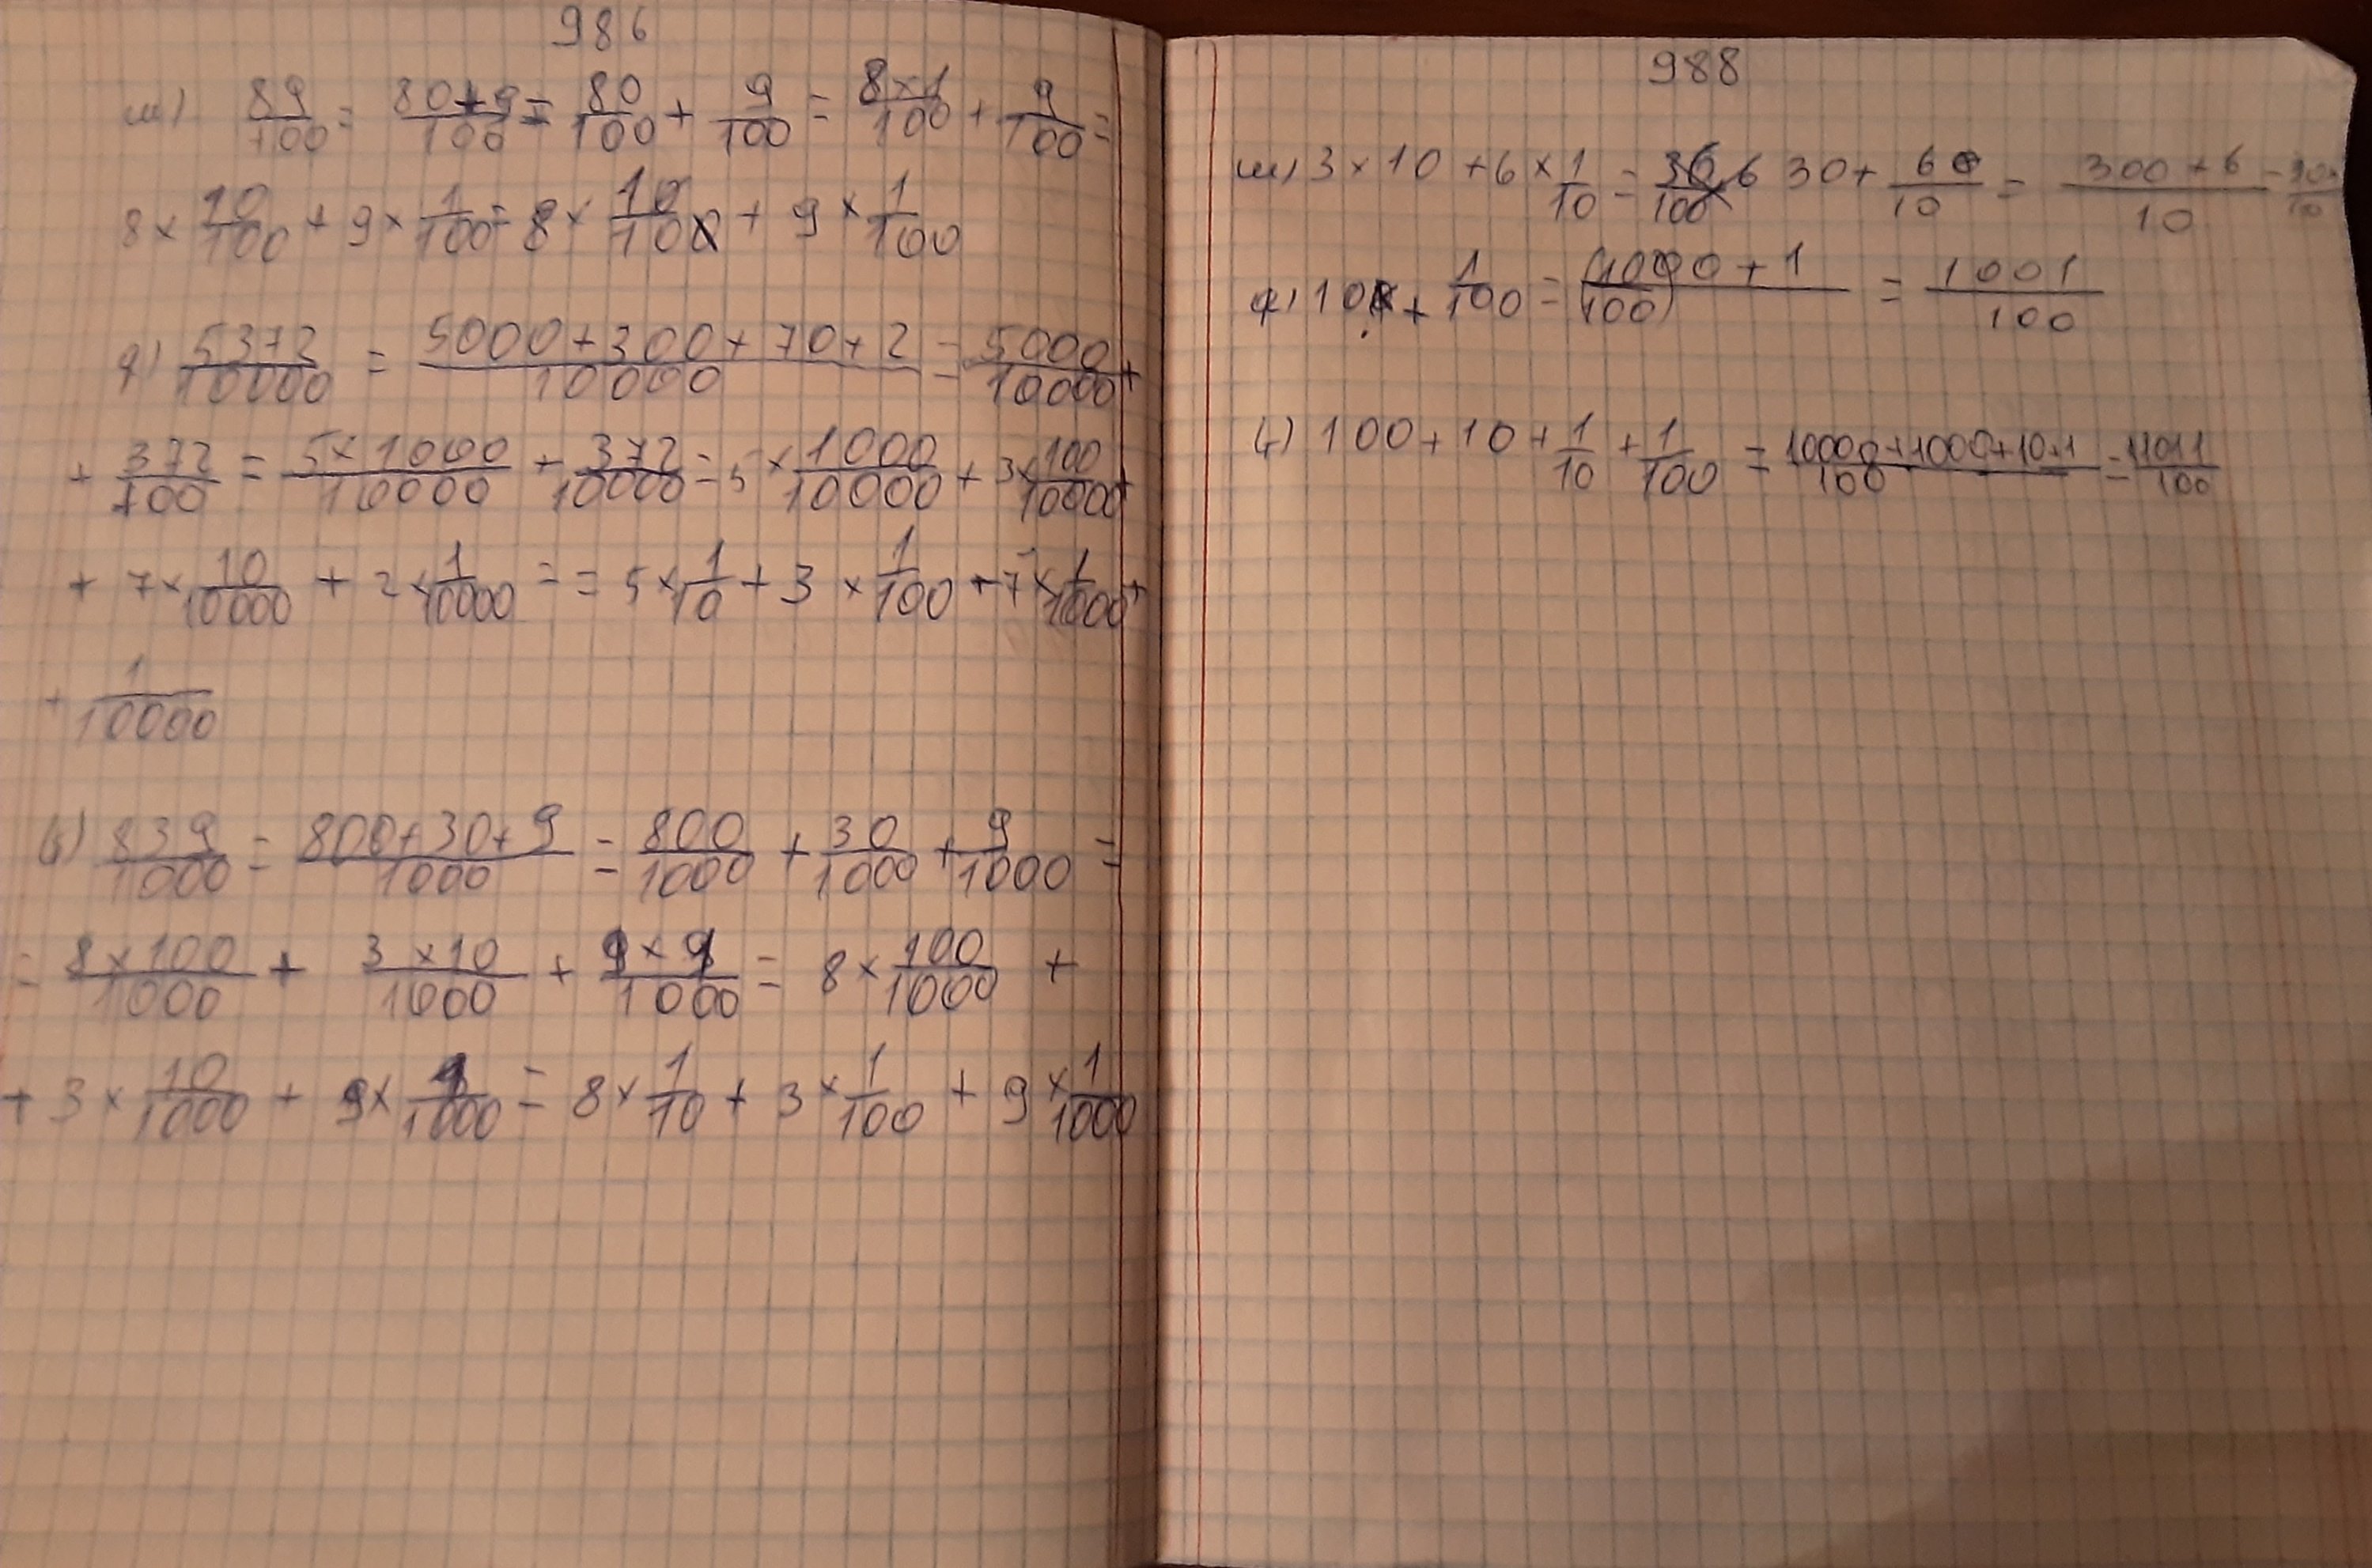 986
89/100 = 80+9/100 = 80/100 + 9/100 = 8×1/100 + 9/100 =
8 × 10/100 + 9 × 1/100 = 8 × 10/100 + 9 × 1/100
5372/10000 = 5000+300+70+2/10000 = 5000/10000 +
+ 372/100 = 5×1000/10000 + 372/10000 = 5 × 1000/10000 + 3×100/10000 +
+ 7×10/10000 + 2×1/10000 = = 5×1/10 + 3 × 1/100 + 7×1/1000 +
+ 1/10000
839/1000 = 800+30+9/1000 = 800/1000 + 30/1000 + 9/1000 =
= 8×100/1000 + 3×10/1000 + 9×1/1000 = 8 × 100/1000 +
+ 3 × 10/1000 + 9× 1/1000 = 8× 1/10 + 3 × 1/100 + 9 × 1/1000
988
3 × 10 + 6 × 1/10 = 30 + 6/10 = 300+6/10 =
10 + 1/100 = 1000+1/100 = 1001/100
100 + 10 + 1/10 + 1/100 = 10000+1000+10+1/100 = 11011/100